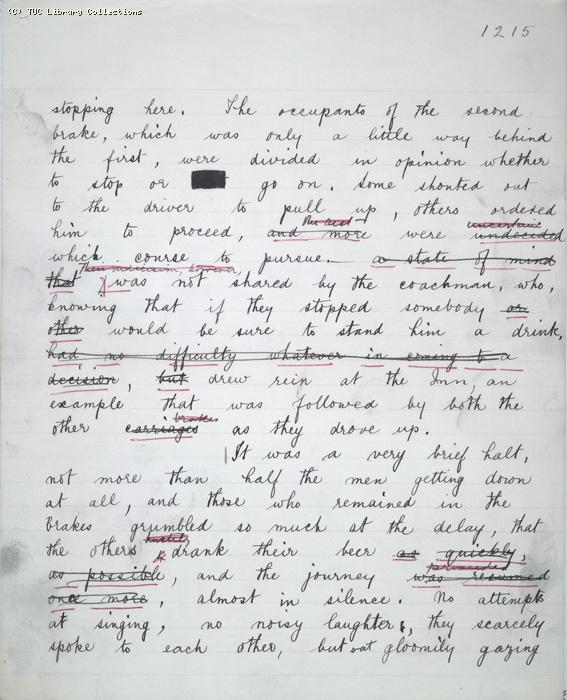 (C) TUC Library Collections
1215
stopping here. The occupants of the second
brake, which was only a little way behind
the first, were divided in opinion whether
to stop or go on. Some shouted out
to the driver to pull up, others ordered
the rest uncertain
him to proceed and more were undecided
which course to pursue. — a state of mind
Their indecision, however,
that was not shared by the coachman, who,
knowing that if they stopped somebody or
other would be sure to stand him a drink,
had no difficulty whatever in coming to a
decision, but drew rein at the Inn, an
example that was followed by both the
brakes
other carriages as they drove up.
It was a very brief halt,
not more than half the men getting down
at all, and those who remained in the
brakes grumbled so much at the delay, that
hastily
the others drank their beer as quickly,
proceeded
as possible, and the journey was resumed
once more, almost in silence. No attempts
at singing, no noisy laughter, they scarcely
spoke to each other, but sat gloomily gazing